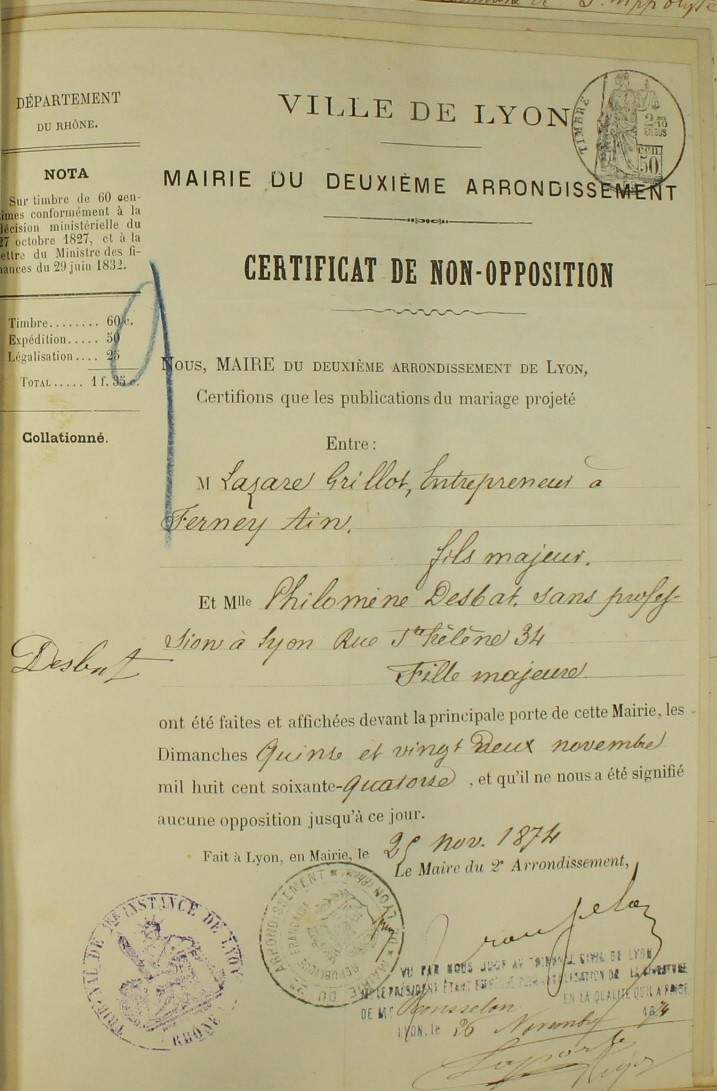 DÉPARTEMENT
DU RHÔNE.
NOTA
Sur timbre de 60 cen-
times conformément à la
décision ministérielle du
27 octobre 1827, et à la
lettre du Ministre des fi-
nances du 29 juin 1832.
Timbre........ 60 c.
Expédition..... 50
Légalisation .... 25
TOTAL..... 1 f. 35 c.
Collationné.
Desbat
VILLE DE LYON
TIMBRE
2/10
EN SUS
50
MAIRIE DU DEUXIÈME ARRONDISSEMENT
CERTIFICAT DE NON-OPPOSITION
NOUS, MAIRE DU DEUXIÈME ARRONDISSEMENT DE LYON,
Certifions que les publications du mariage projeté
Entre :
M Lazare Grillot, Entrepreneur à
Ferney Ain.
fils majeur.
Et Mlle Philomène Desbat, sans profes-
sion à Lyon Rue Ste Hélène 34
Fille majeure
ont été faites et affichées devant la principale porte de cette Mairie, les
Dimanches Quinze et vingt Deux novembre
mil huit cent soixante-Quatorse, et qu'il ne nous a été signifié
aucune opposition jusqu'à ce jour.
Fait à Lyon, en Mairie, le 25 nov. 1874
Le Maire du 2e Arrondissement,
TRIBUNAL DE 1RE INSTANCE DE LYON
RHÔNE
MAIRIE DU 2E ARRONDISSEMENT
RÉPUBLIQUE FRANÇAISE
VU PAR NOUS JUGE AU TRIBUNAL CIVIL DE LYON
LE PRÉSIDENT ÉTANT EMPÊCHÉ POUR LÉGALISATION DE LA SIGNATURE
DE Mr Rousselon EN LA QUALITÉ QU'IL A PRISE
LYON, le 26 Novembre 1874